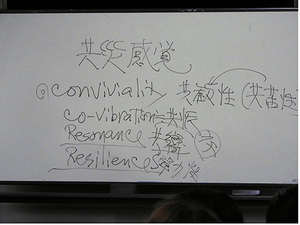 共災感道
◎conviviality 共歓性 (共苦性)
co-vibration 共振
Resonance 共鳴
Resilience 弾力